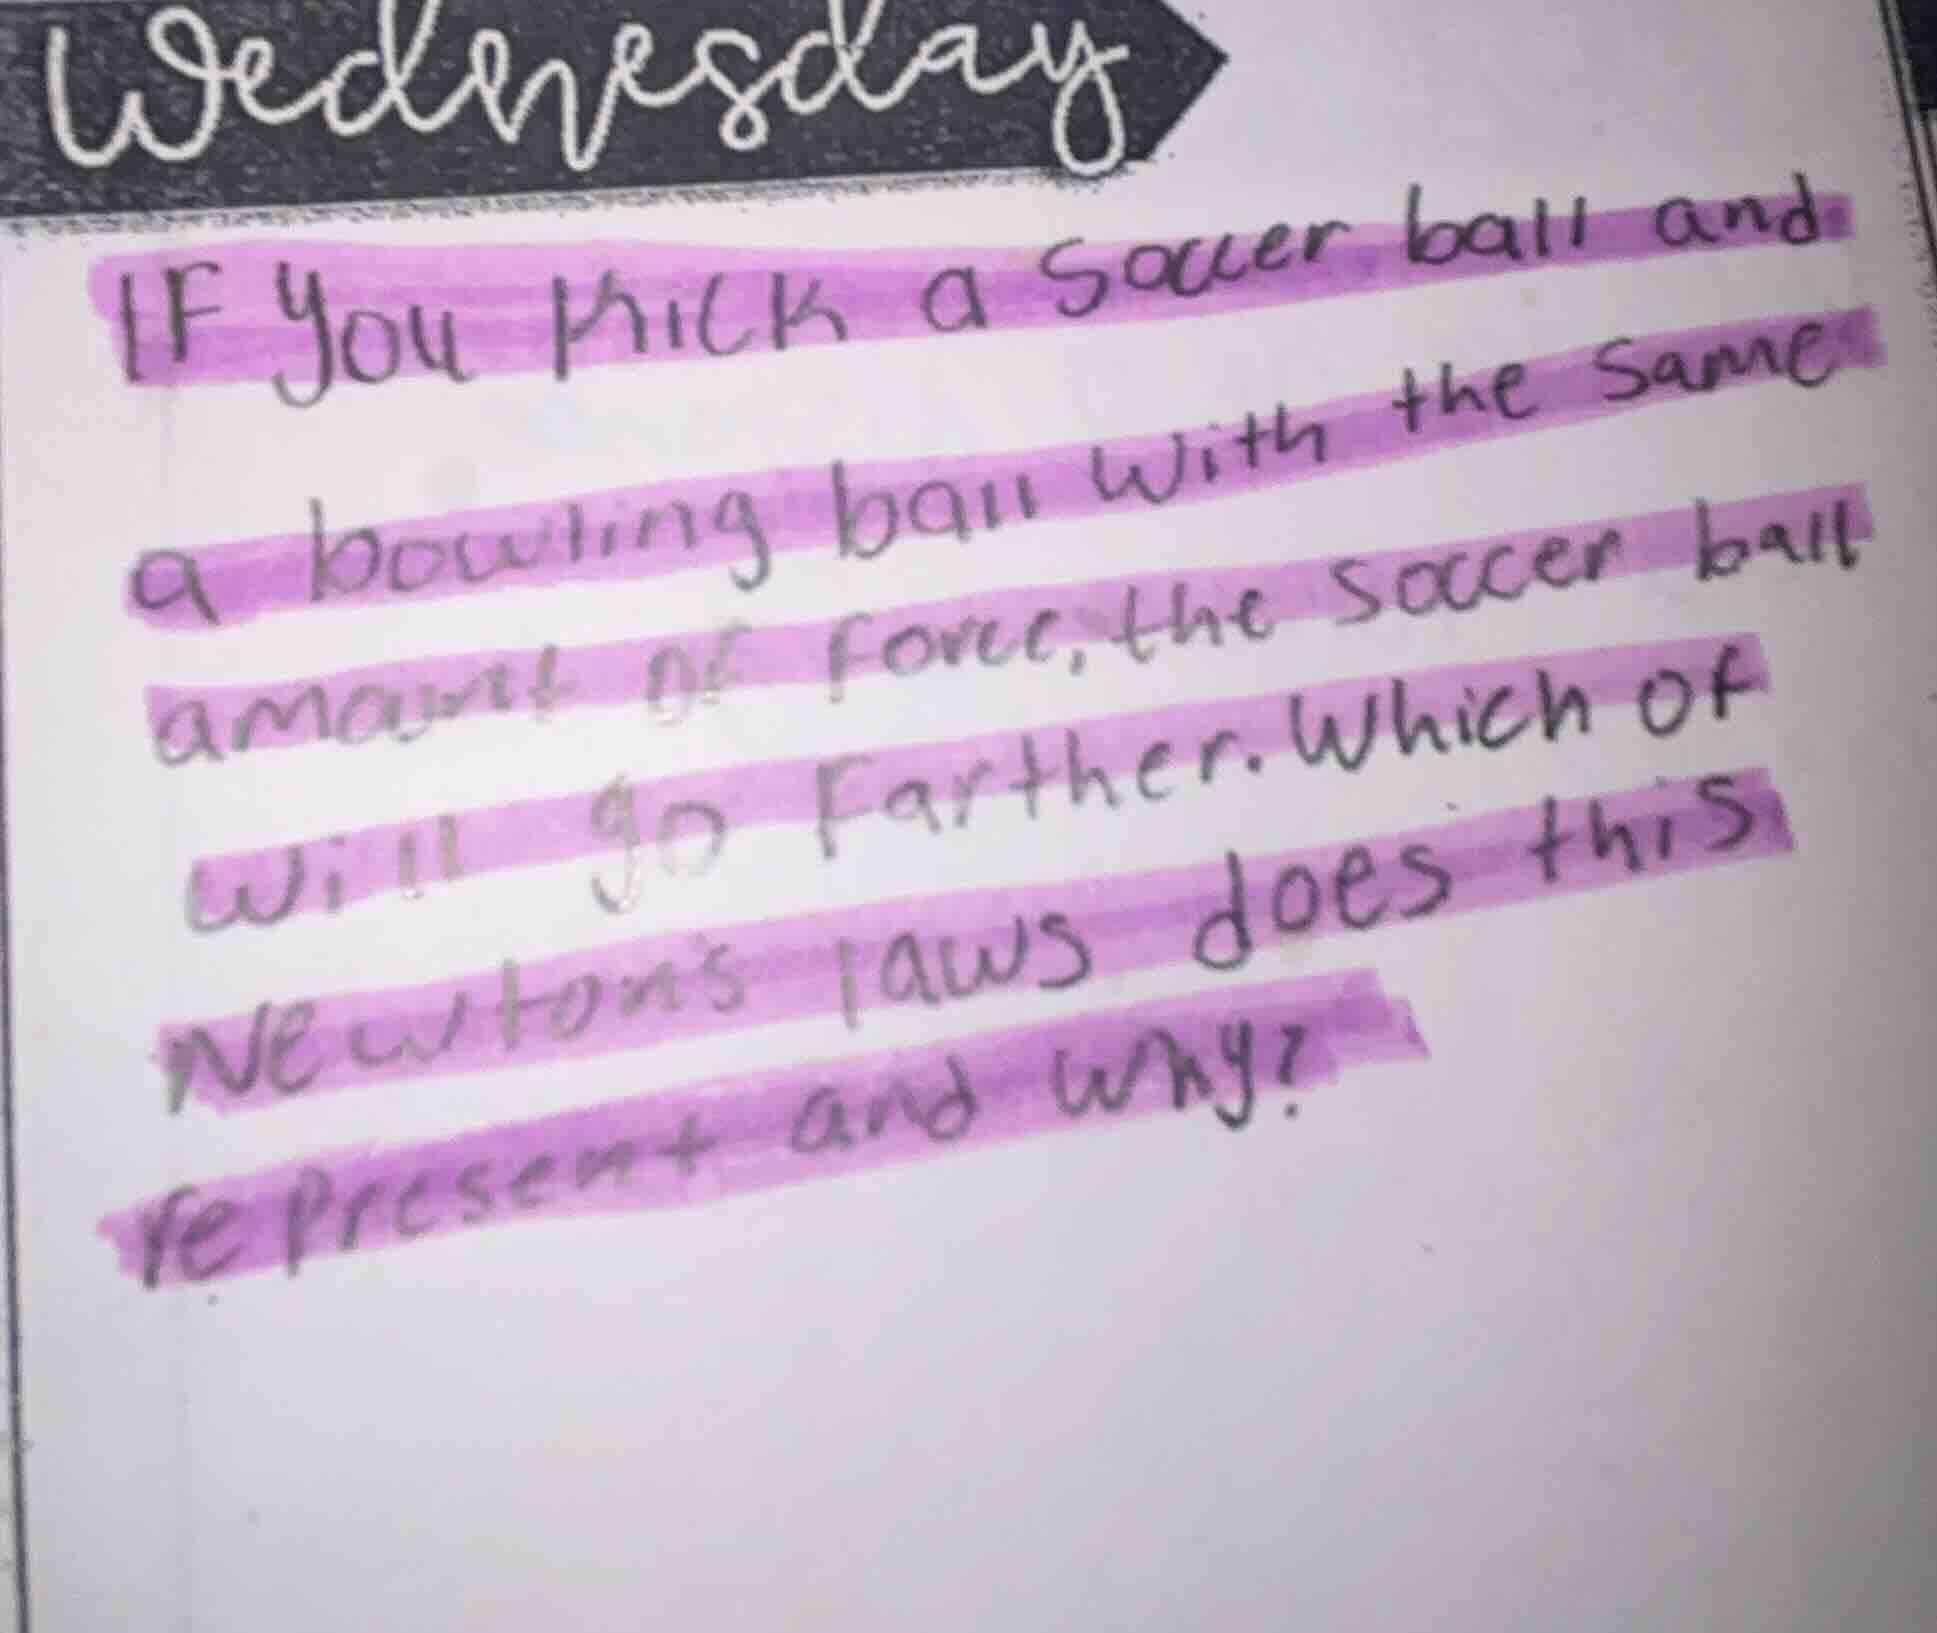 Wednesday
IF you kick a soccer ball and
a bowling ball with the same
amount of force, the soccer ball
will go farther. Which of
Newton's laws does this
represent and why?